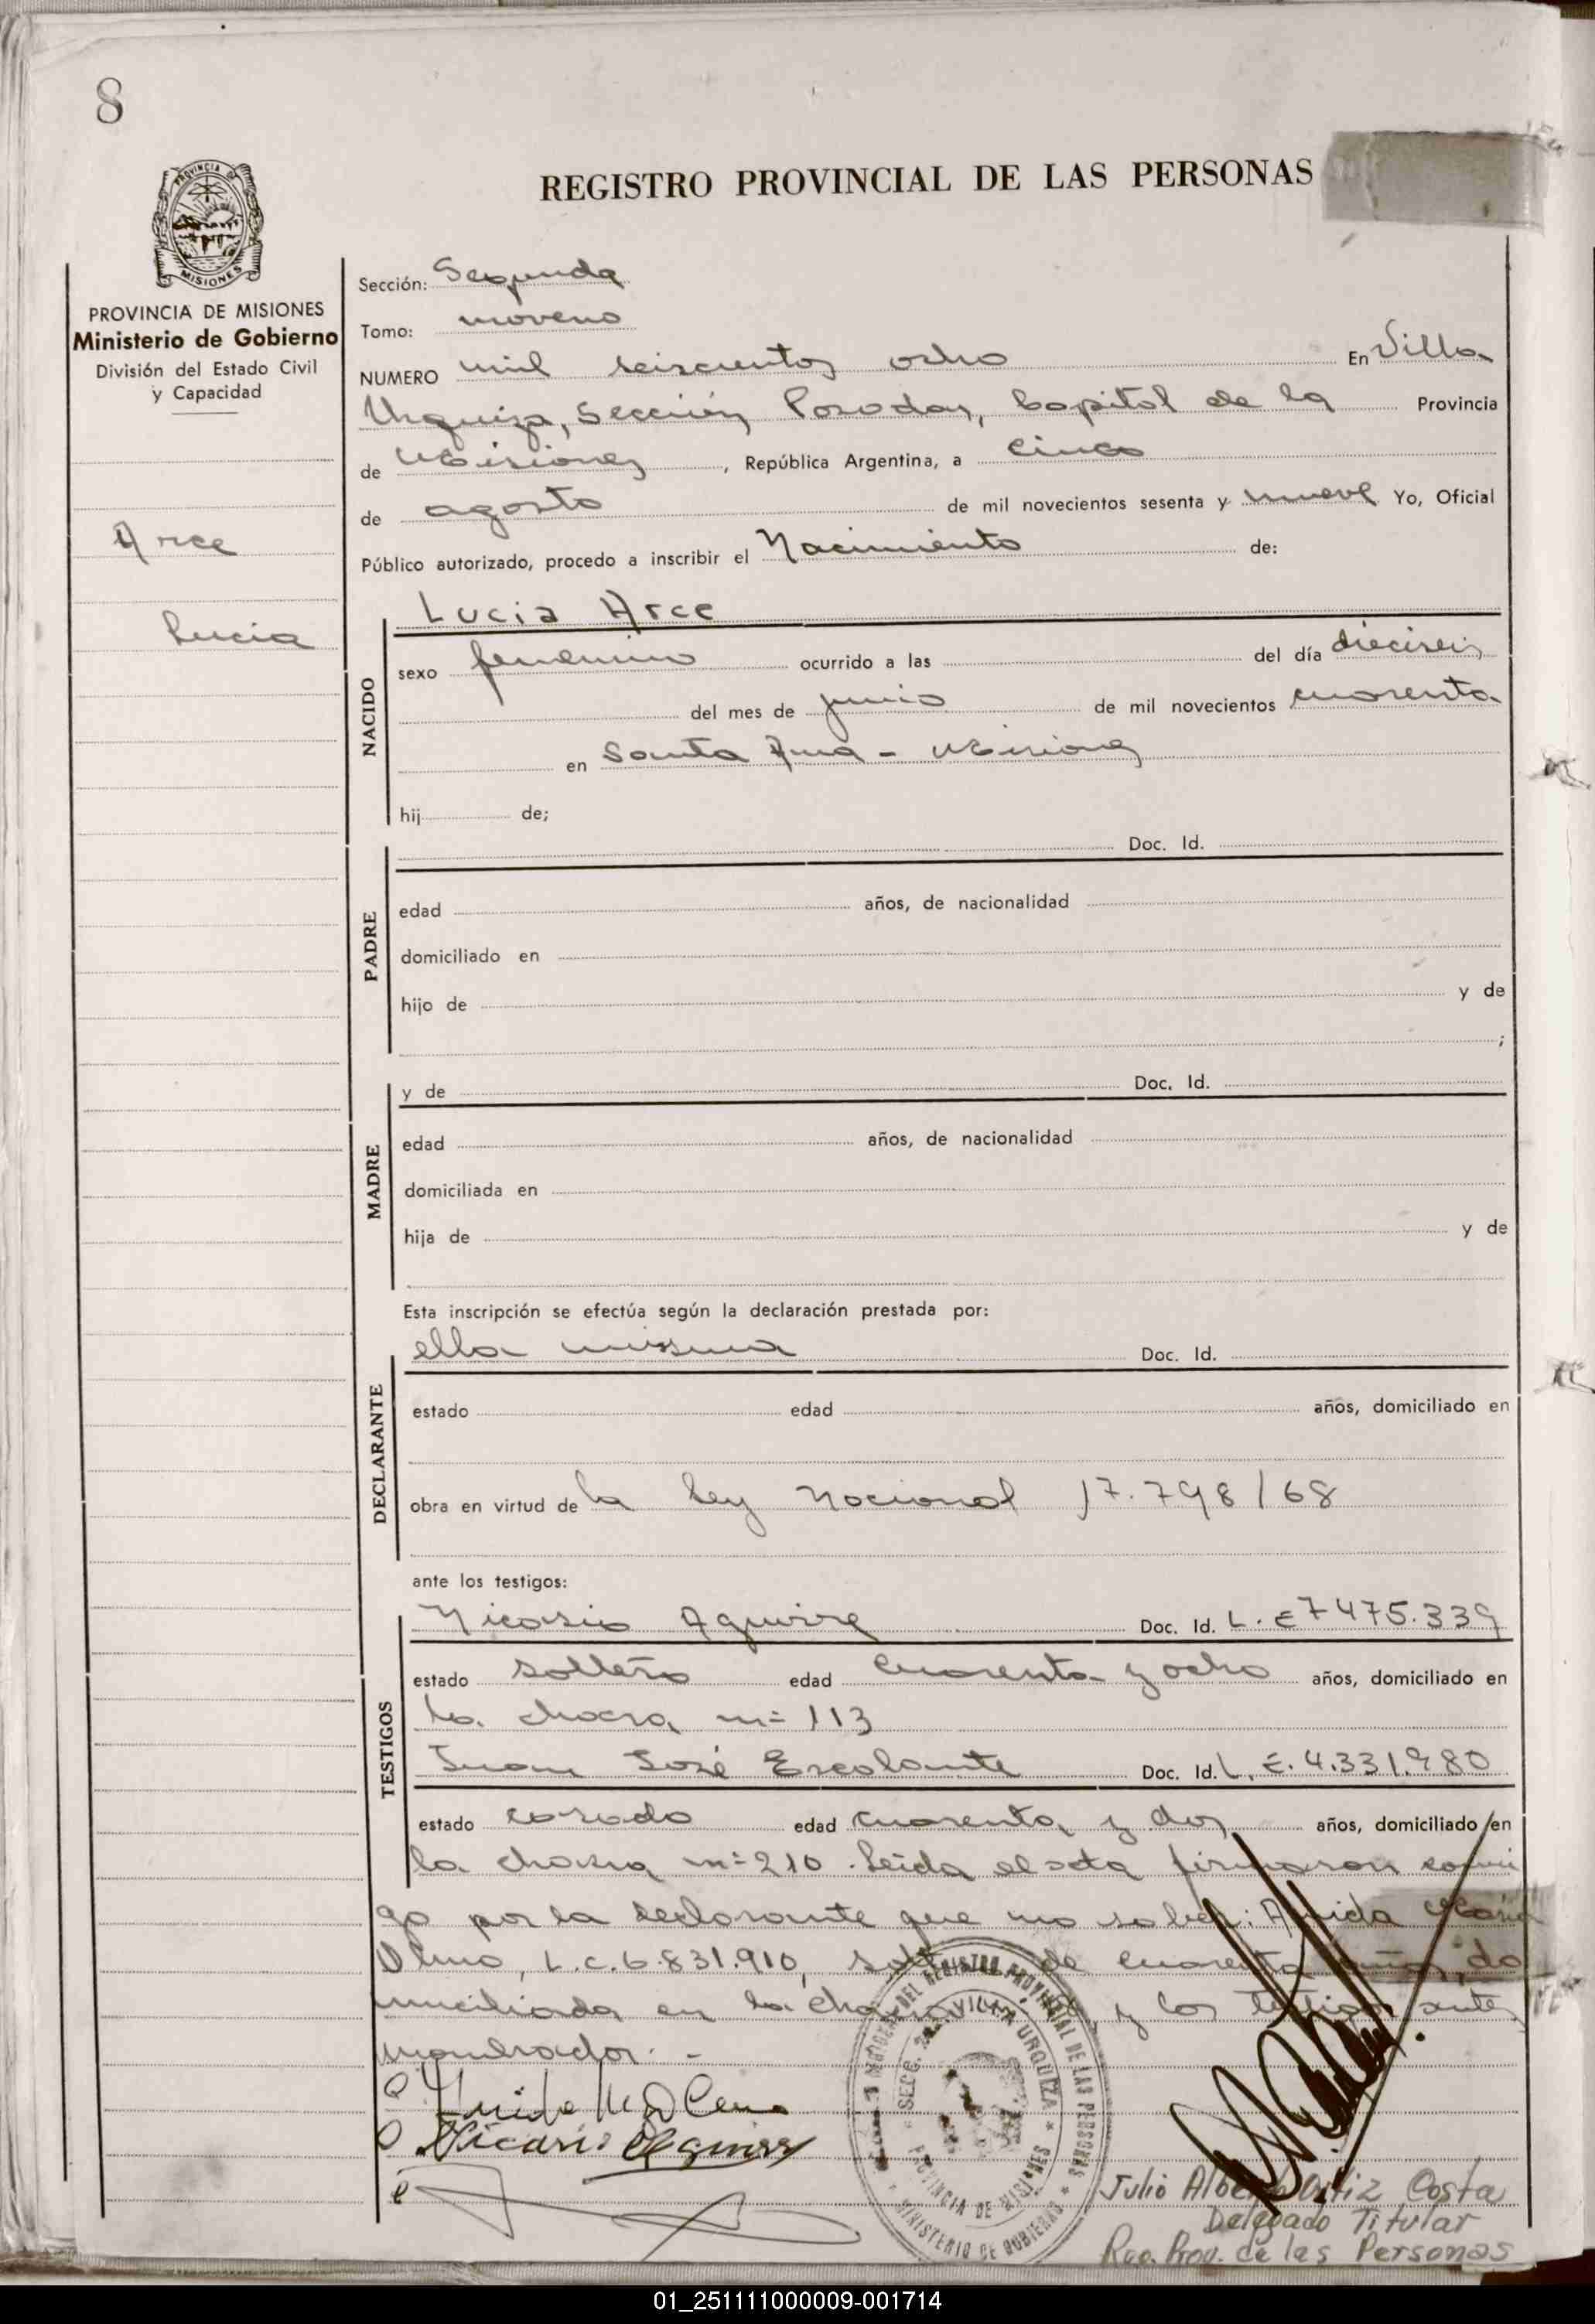 8
REGISTRO PROVINCIAL DE LAS PERSONAS
PROVINCIA DE
MISIONES
PROVINCIA DE MISIONES
Ministerio de Gobierno
División del Estado Civil
y Capacidad
Arce
Lucia
Sección: Segunda
Tomo: noveno
NUMERO mil seiscientos ocho En Villa
Urquiza, Sección Posadas, Capital de la Provincia
de Misiones, República Argentina, a cinco
de agosto de mil novecientos sesenta y nueve Yo, Oficial
Público autorizado, procedo a inscribir el Nacimiento de:
Lucia Arce
NACIDO
sexo femenino ocurrido a las del día dieciseis
del mes de junio de mil novecientos cuarenta
en Santa Ana - Misiones
hij de;
Doc. Id.
PADRE
edad años, de nacionalidad
domiciliado en
hijo de y de
;
y de Doc. Id.
MADRE
edad años, de nacionalidad
domiciliada en
hija de y de
Esta inscripción se efectúa según la declaración prestada por:
ella misma Doc. Id.
DECLARANTE
estado edad años, domiciliado en
obra en virtud de la ley Nacional 17.798/68
ante los testigos:
Nicasio Aguirre Doc. Id. L. E 7475.339
TESTIGOS
estado soltero edad cuarenta y ocho años, domiciliado en
la chacra nº 113
Juan José Escalante Doc. Id. L. E. 4.331.980
estado casado edad cuarenta y dos años, domiciliado en
la chacra nº 210. Leida el acta firmaron conmi
go por la declarante que no sabe: María
L.C. 6.831.910, de cuarenta años, do
miciliada en la y los testigos antes
mencionados. -
Nicasio Aguirre
REGISTRO PROVINCIAL DE LAS PERSONAS
SECC. 2a. VILLA URQUIZA
PROVINCIA DE MISIONES
MINISTERIO DE GOBIERNO
Julio Alberto Ortiz Costa
Delegado Titular
Reg. Prov. de las Personas
01_251111000009-001714